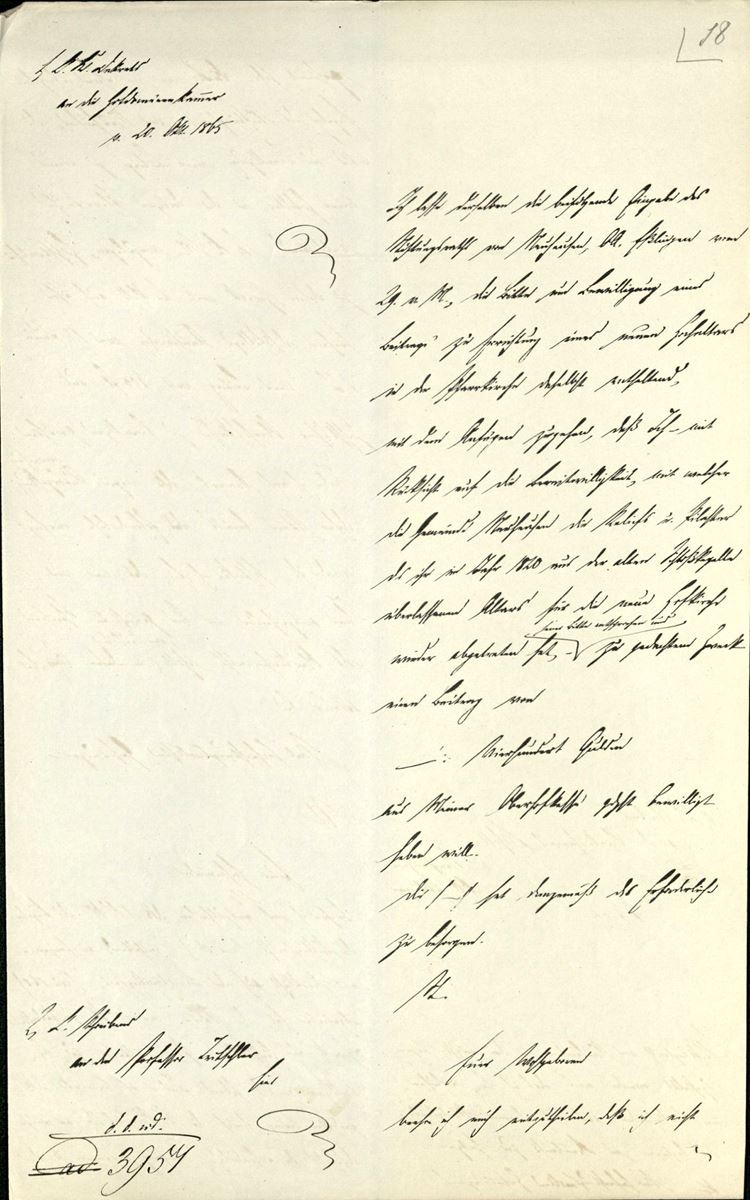 18
1, K. H. Dekrets
an die Hofdomänenkammer
v. 20. Okt. 1865
Ich lasse derselben die beifolgende Eingabe des
Stiftungsraths von Neuhausen, OA. Eßlingen vom
29. v. M., die Bitte um Bewilligung eines
Beitrags zu Errichtung eines neuen Hochaltars
in der Pfarrkirche daselbst enthaltend,
mit dem Anfügen zugehen, daß Ich – mit
Rücksicht auf die Bereitwilligkeit, mit welcher
die Gemeinde Neuhausen die Reliefs u. Pilaster
des ihr im Jahr 1820 aus der alten Schloßkapelle
überlassenen Altars für die neue Hofkirche
seiner Bitte entsprechen und
wieder abgetreten hat, – zu gedachtem Zweck
einen Beitrag von
–: Vierhundert Gulden
aus Meiner Oberhofkasse gdgst bewilligt
haben will.
Die hat demgemäß das Erforderliche
zu besorgen.
St.
2, K. Schreibens
an den Professor
hier
d. d. eod.
ad 3954
Euer Wohlgeboren
beehre ich mich mitzutheilen, daß ich nicht